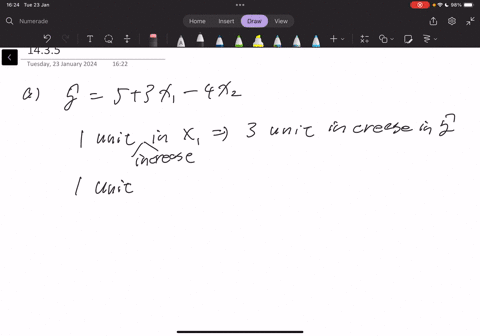 16:24 Tue 23 Jan
98%
Numerade
Home Insert Draw View
14.3.5
Tuesday, 23 January 2024 16:22
a) ŷ = 5+3x₁ − 4x₂
1 unit in x₁ ⇒ 3 unit increase in ŷ
increase
1 unit